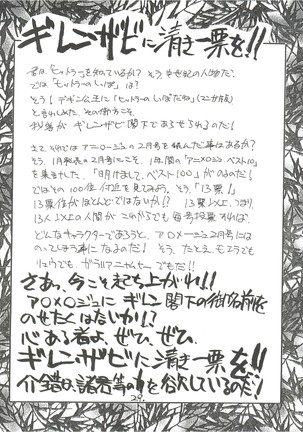 ギレン・ザビに清き一票を!!
君は、ヒットラーを知っているか? そう、中世紀の人物だ!
では「ヒットラーのしっぽ」は?
そう! デギン公王に「ヒットラーのしっぽだな」
と言わしめた、その御方こそ
ギレンザビ閣下であらせられるのだ!
さて、それでは アニメージュの2月号を
そう、1月発売の2月号にこそ、1年間の「アニメ〇ジュ・ベスト10」
を集計した、「明けまして、ベスト100」がのるのだ!
ではその100位付近を見てみよう。そう、「13票」!
13票位がほとんどではないか!? 13票以上、つまり、
13人以上の人間が これからでも 毎号投票すれば、
どんなキャラクターであろうと、ア〇メージュ2月号には
のってしまう事になるのだ! そう、たとえ モエラでも
リュウでも、ガラハアニャ
さあっ、今こそ起ち上がれ!!
ア〇メ〇ジュに ギレン閣下の御名前を
のせたくはないか!?
心ある者よ、ぜひ、ぜひ、
ギレン・ザビに清き一票を!!
諸君等の を欲しているのだ!
29